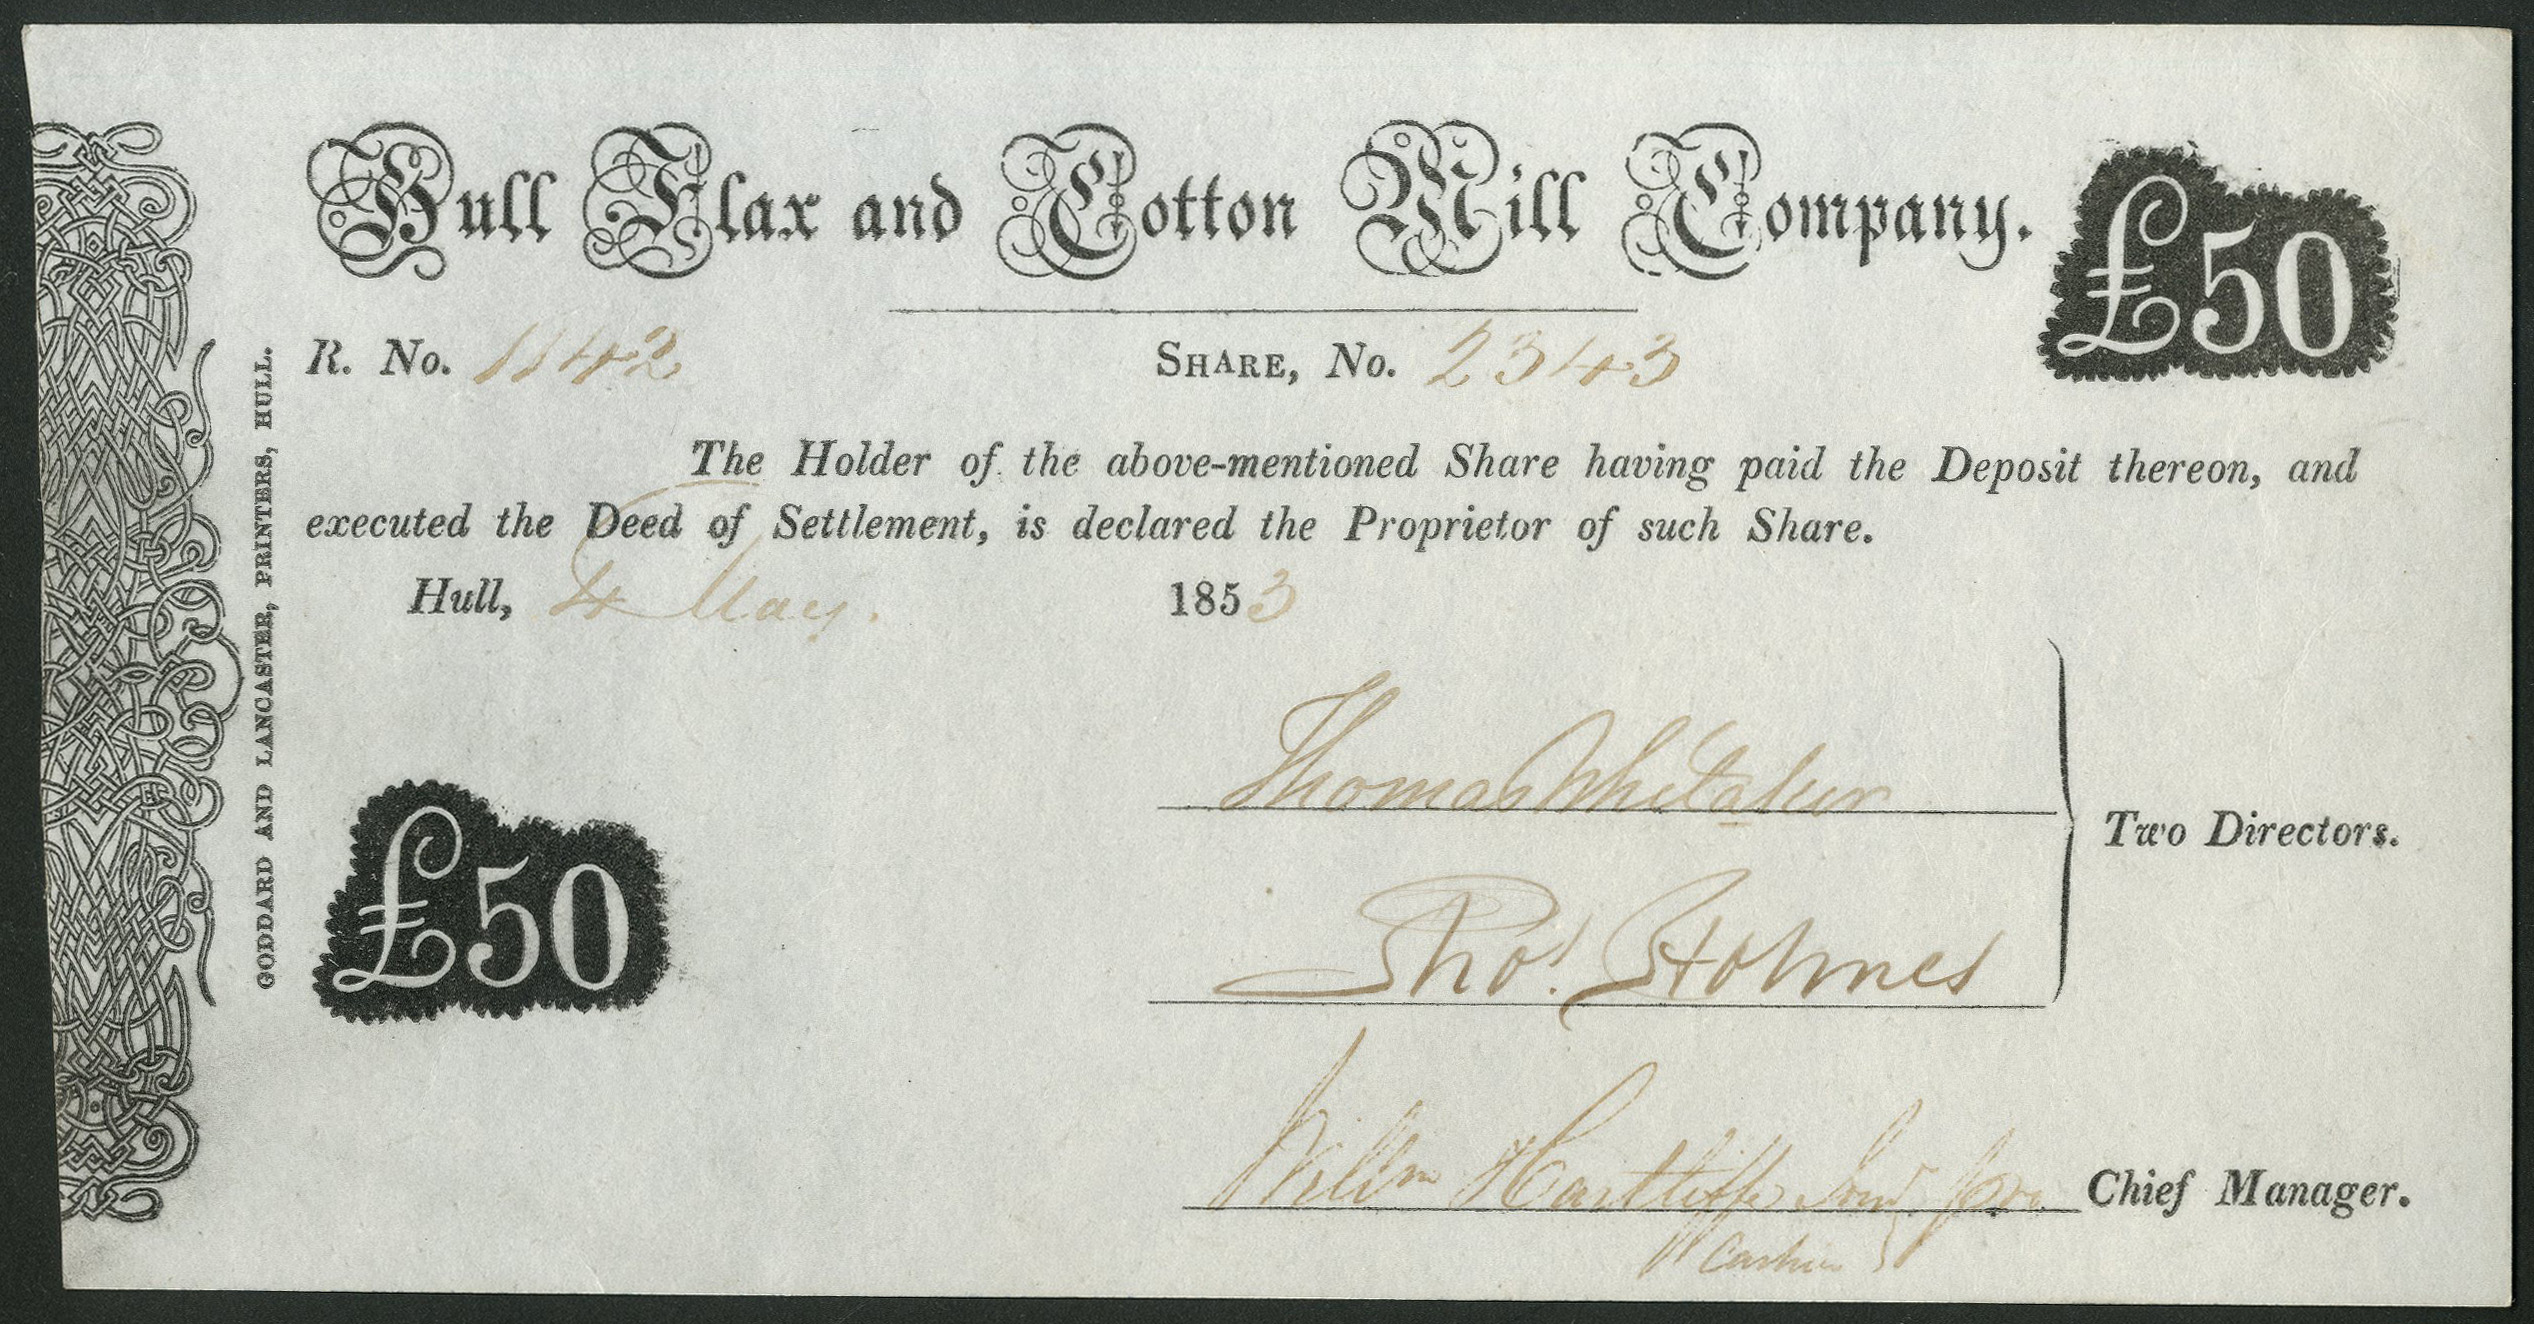 Hull Flax and Cotton Mill Company.
£50
R. No. 1142
SHARE, No. 2343
The Holder of the above-mentioned Share having paid the Deposit thereon, and
executed the Deed of Settlement, is declared the Proprietor of such Share.
Hull, 4 May. 1853
Thomas Whitaker
Two Directors.
Thos. Holmes
£50
Willm Chief Manager.
GODDARD AND LANCASTER, PRINTERS, HULL.